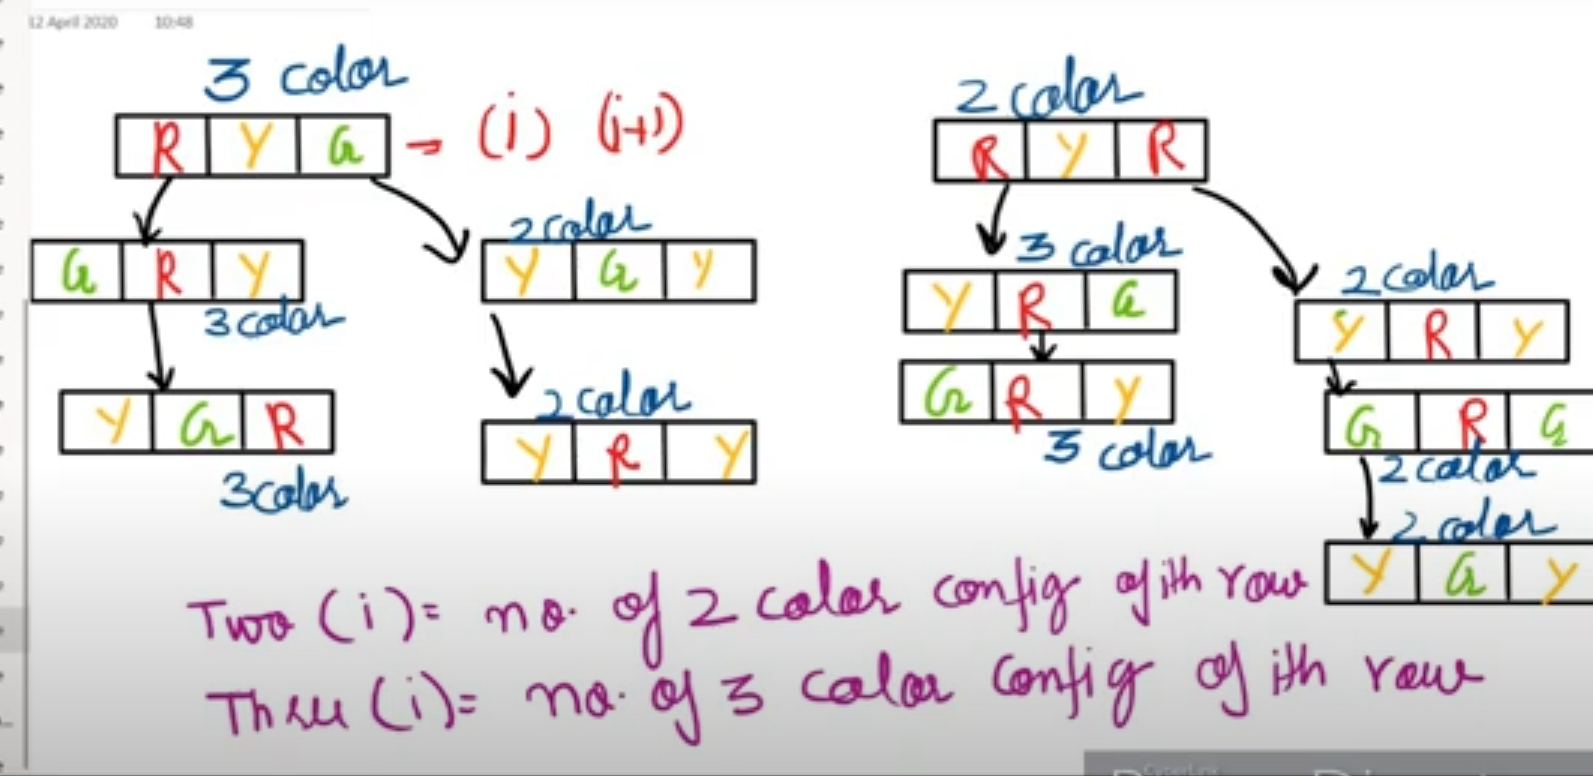 12 April 2020 10:48
3 color
R Y G - (i) (i+1)
G R Y
3 color
Y G R
3 color
2 color
Y G Y
2 color
Y R Y
2 color
R Y R
3 color
Y R G
G R Y
3 color
2 color
Y R Y
G R G
2 color
2 color
Y G Y
Two (i) = no. of 2 color config of ith row
Three (i) = no. of 3 color config of ith row